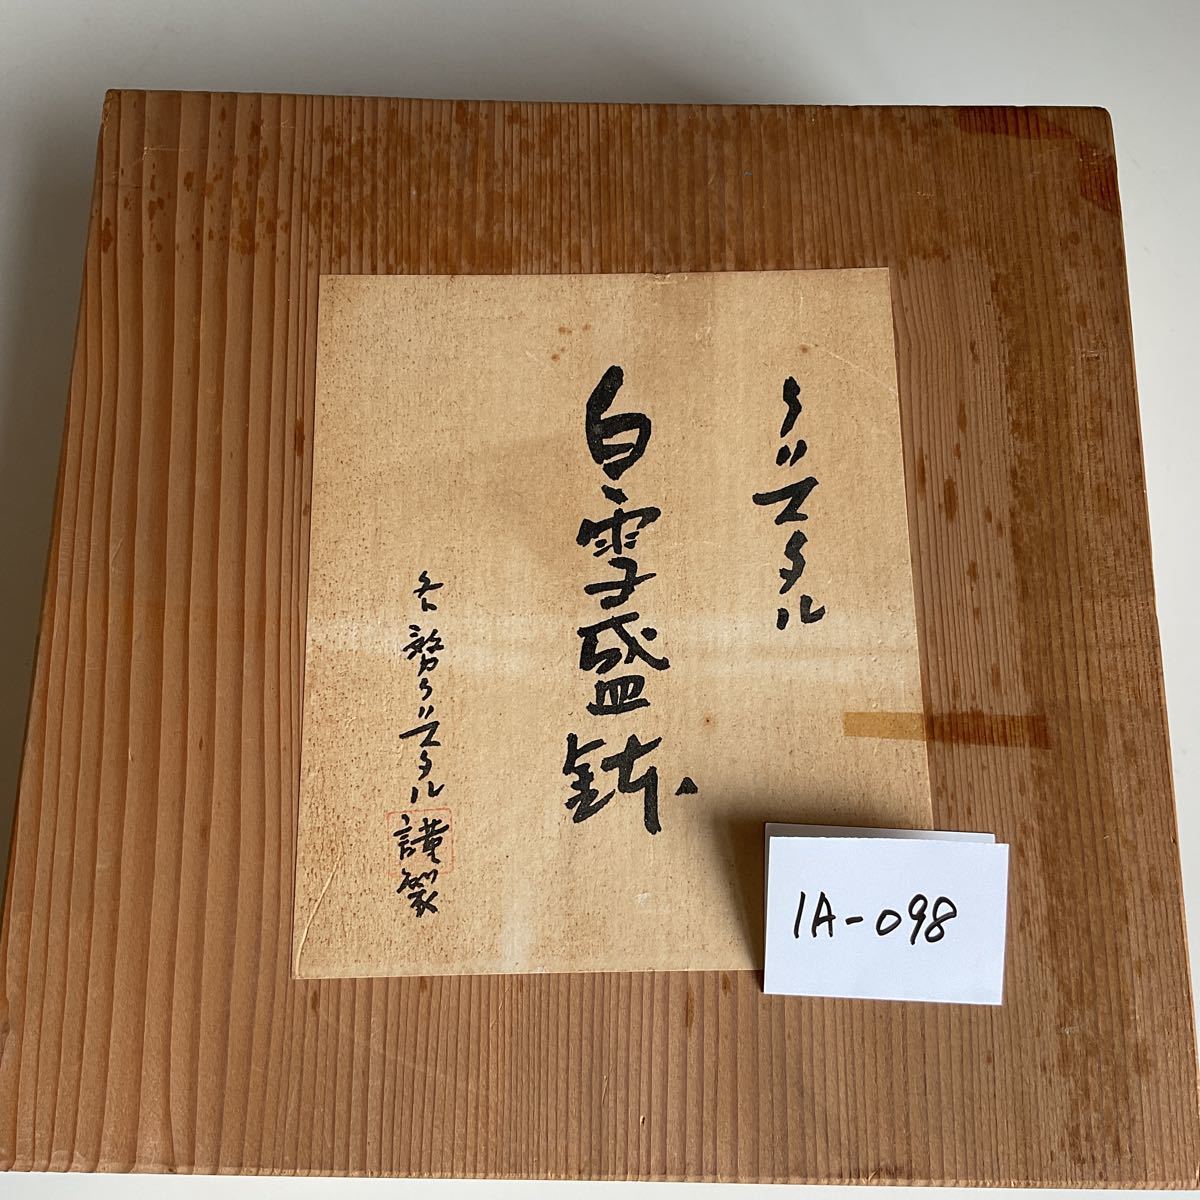 クリスタル
白雪盛鉢
各務クリスタル謹製
1A-098